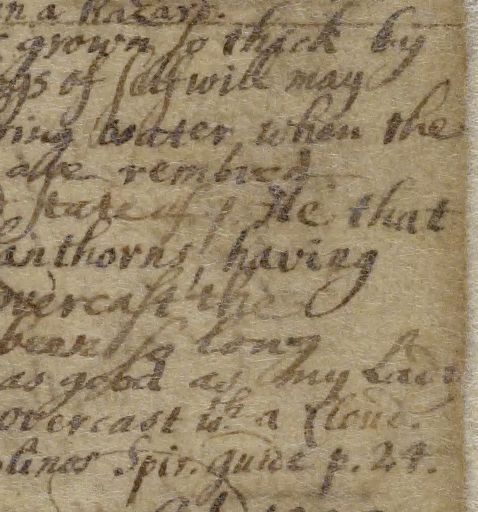 in a Hazard.
grown so thick by
gs of self will may
ring water when the
are remoued
state of y He that
lanthorns, having
overcast the
been so long
as good as my Lady
overcast wth a Cloud.
linos Spir. guide p. 24.